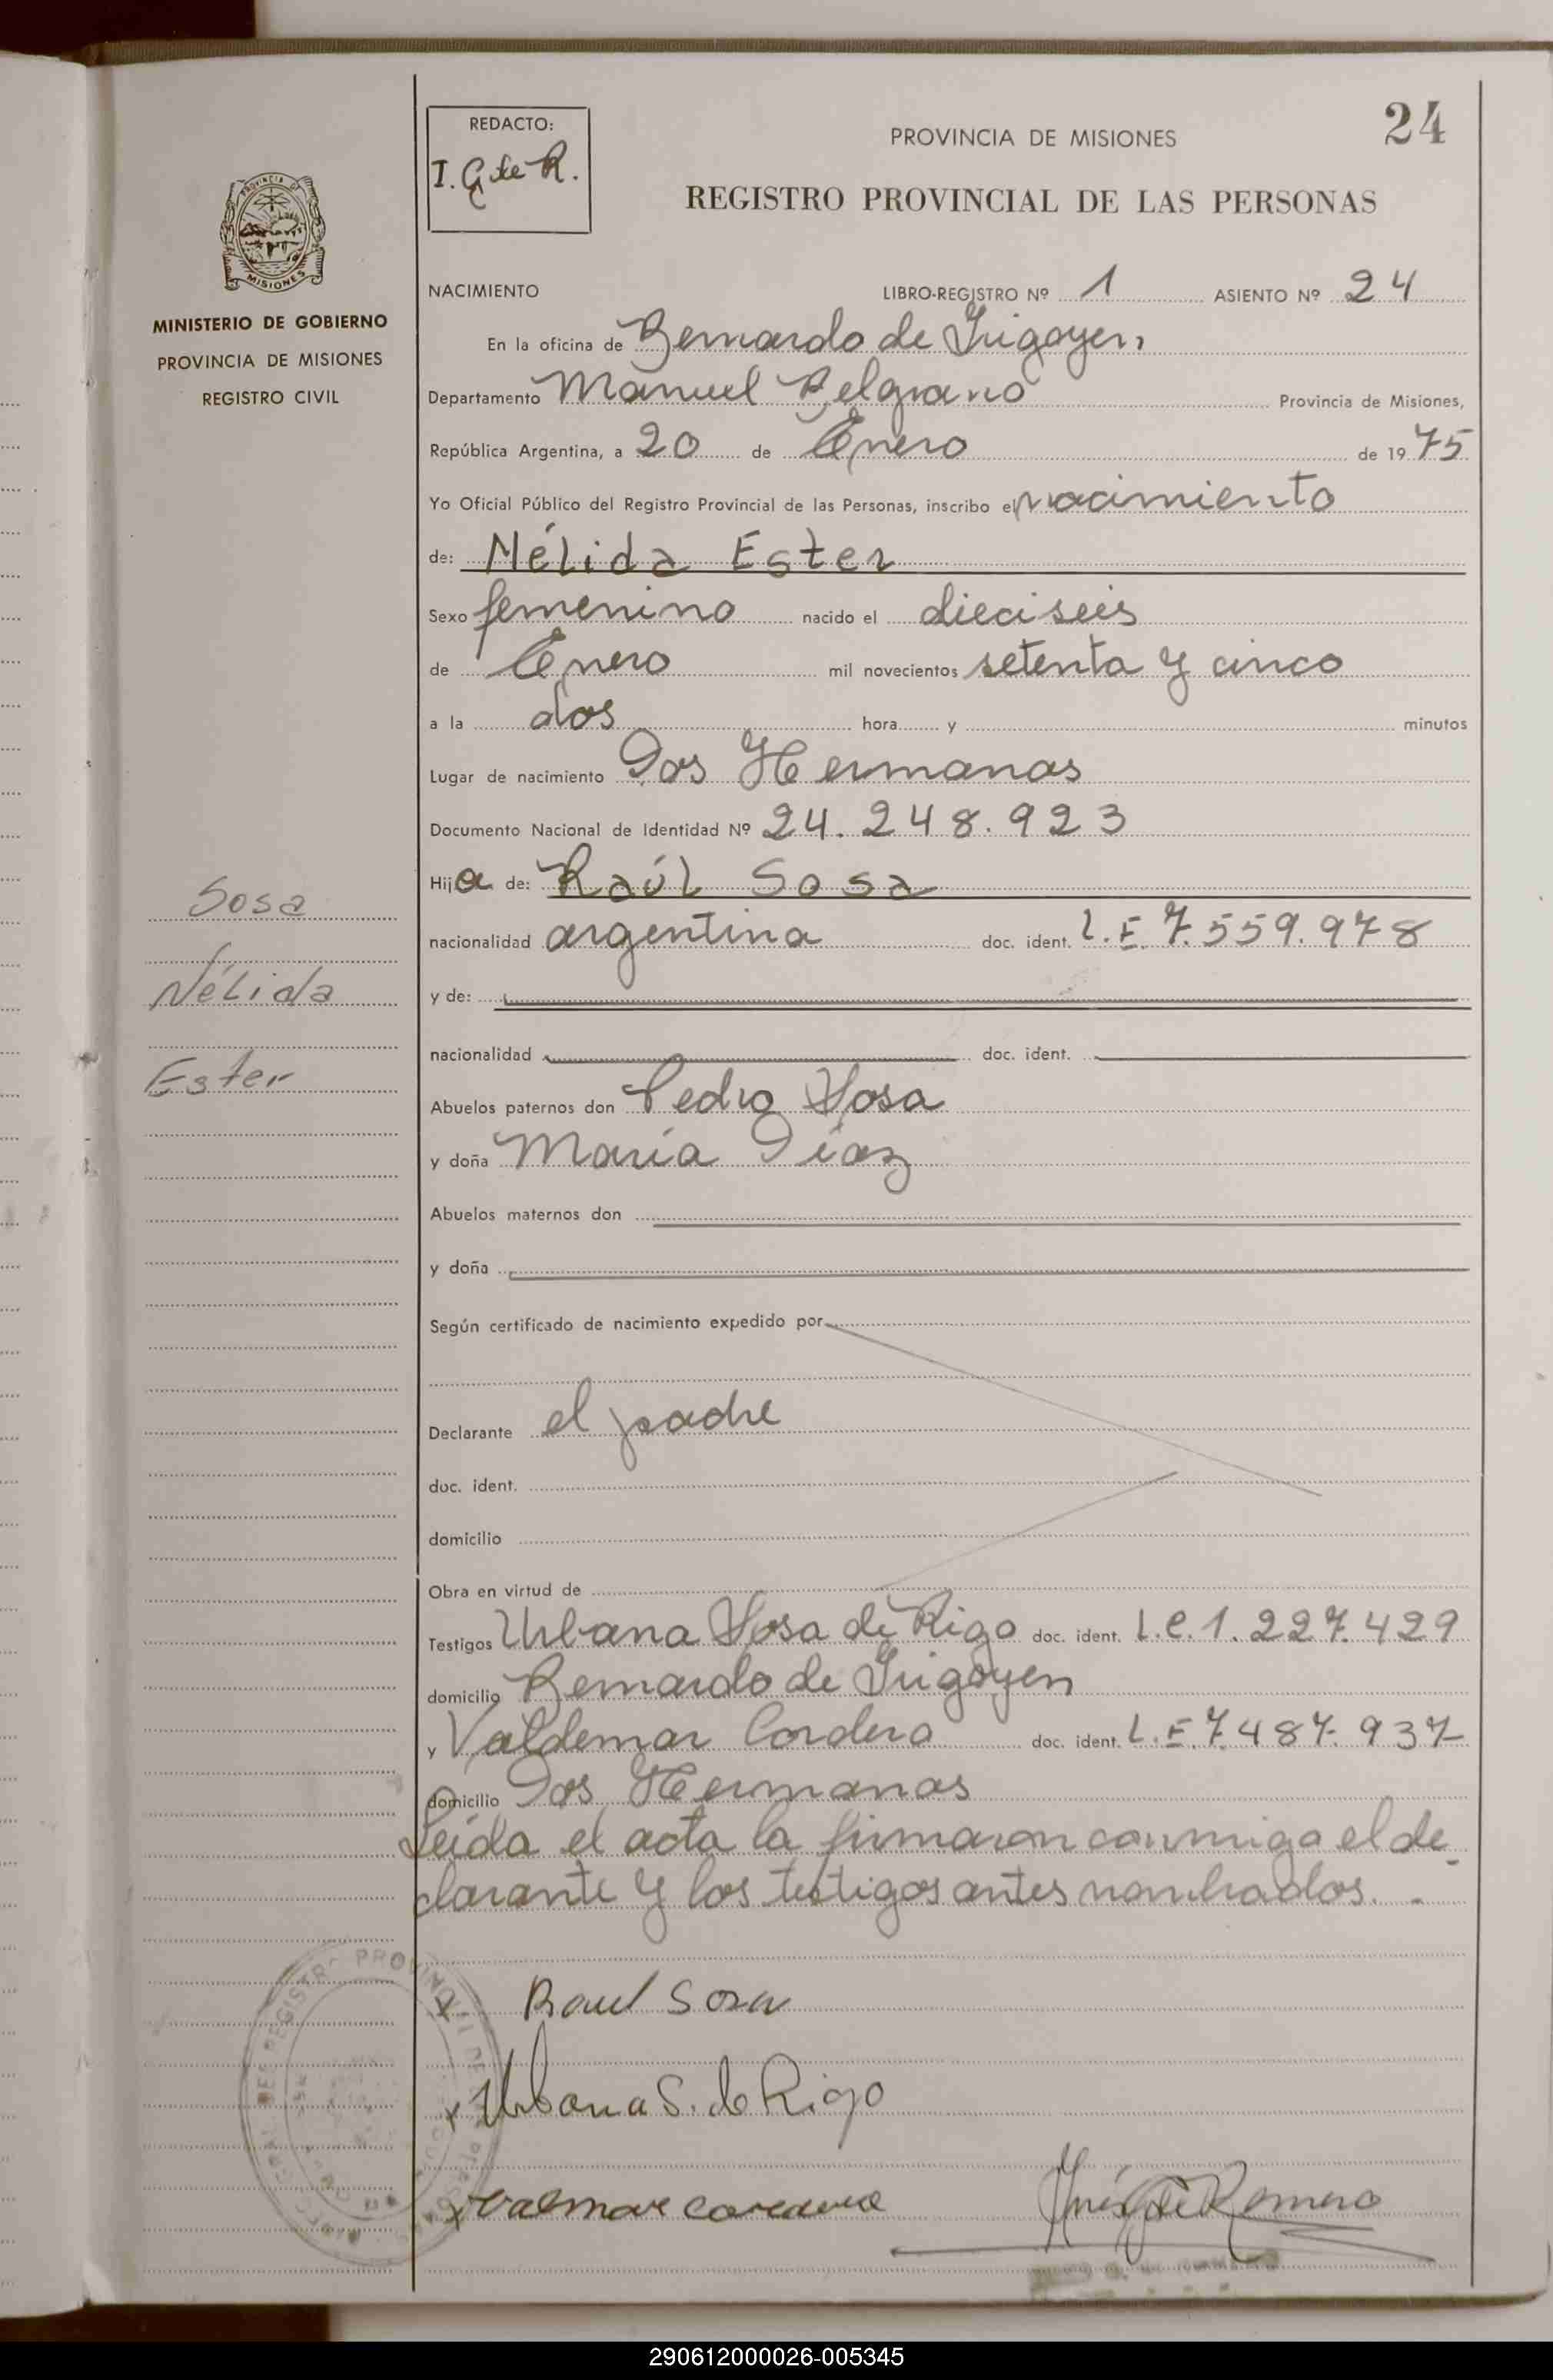 24
REDACTO:
I. G de R.
PROVINCIA DE MISIONES
REGISTRO PROVINCIAL DE LAS PERSONAS
MISIONES
MINISTERIO DE GOBIERNO
PROVINCIA DE MISIONES
REGISTRO CIVIL
NACIMIENTO LIBRO-REGISTRO Nº 1 ASIENTO Nº 24
En la oficina de Bernardo de Irigoyen
Departamento Manuel Belgrano Provincia de Misiones,
República Argentina, a 20 de Enero de 1975
Yo Oficial Público del Registro Provincial de las Personas, inscribo el nacimiento
de: Nélida Ester
Sexo femenino nacido el dieciseis
de Enero mil novecientos setenta y cinco
a la dos hora y minutos
Lugar de nacimiento Dos Hermanas
Documento Nacional de Identidad Nº 24.248.923
Hija de: Raúl Sosa
nacionalidad argentina doc. ident. L.E. 7.559.978
y de:
nacionalidad doc. ident.
Abuelos paternos don Pedro Sosa
y doña María Díaz
Abuelos maternos don
y doña
Según certificado de nacimiento expedido por
Declarante el padre
doc. ident.
domicilio
Obra en virtud de
Testigos Urbana Sosa de Rigo doc. ident. L.C. 1.227.429
domicilio Bernardo de Irigoyen
y Valdemar Cordero doc. ident. L.E. 7.487.937
domicilio Dos Hermanas
Leída el acta la firmaron conmigo el de-
clarante y los testigos antes nombrados. -
Sosa
Nélida
Ester
x Raul Sosa
x Urbana S. de Rigo
x Valmar Cordero
Inés G de Romero
290612000026-005345